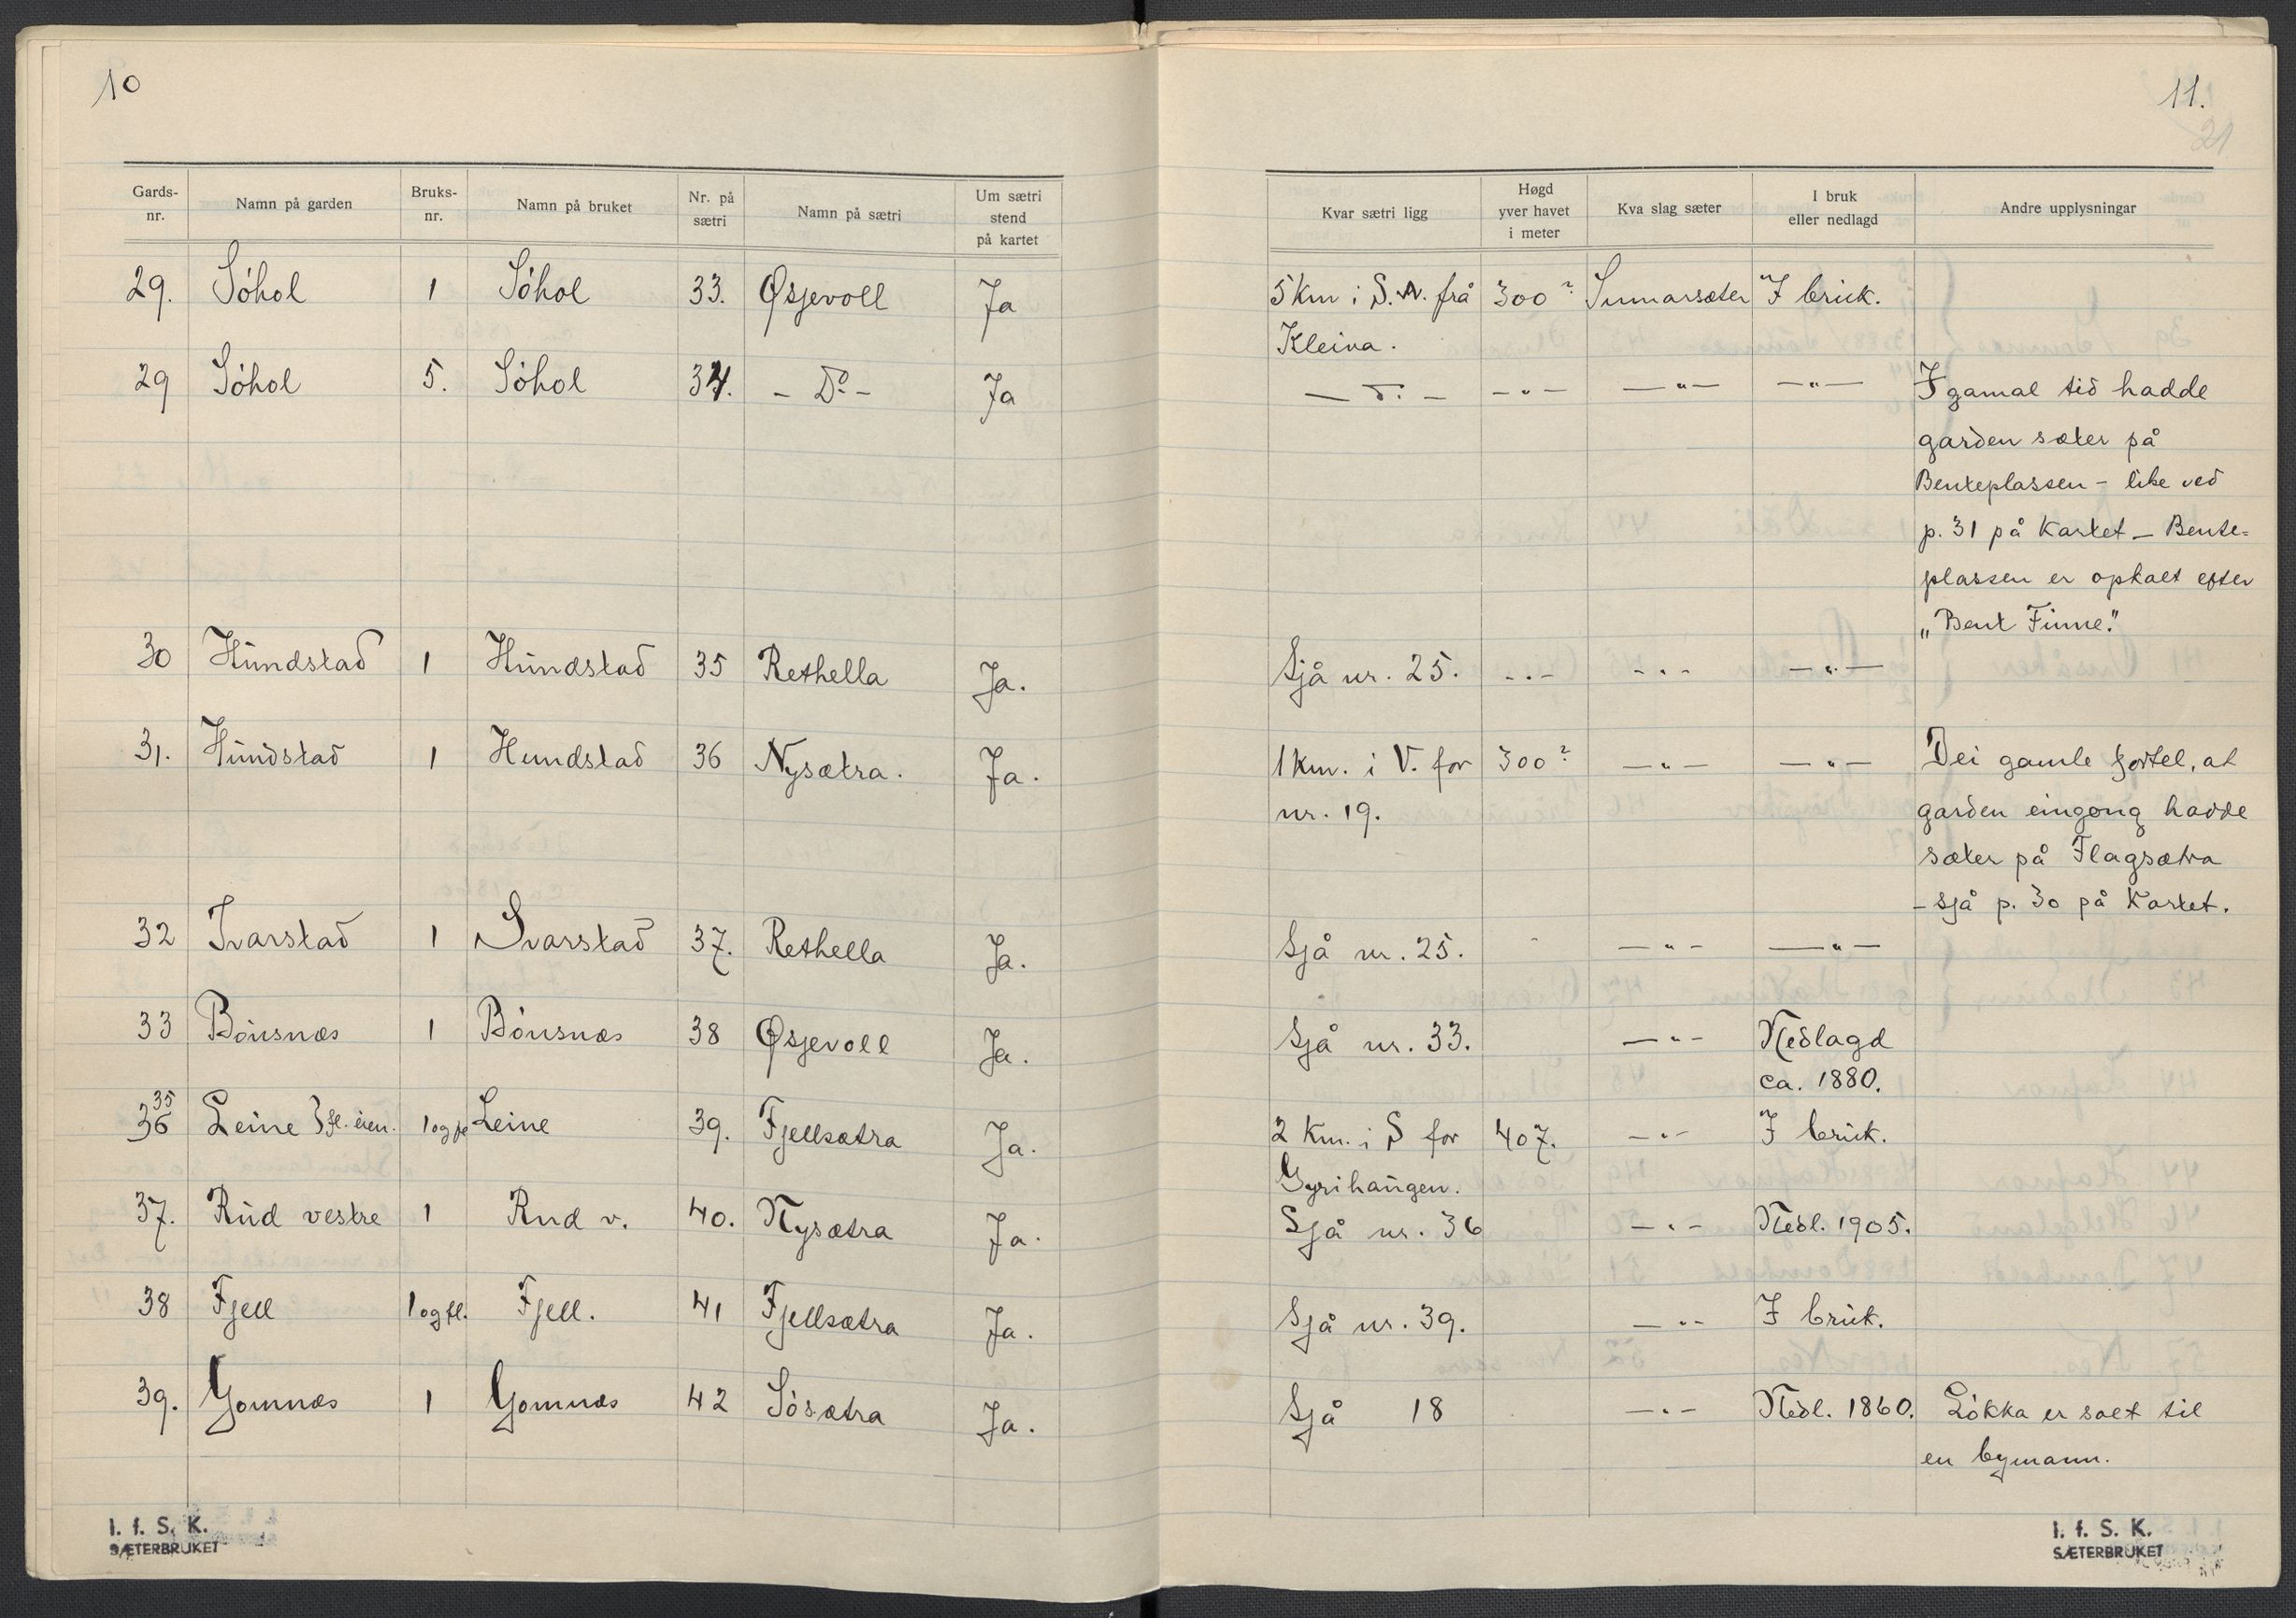 10
Gards-nr. Namn på garden Bruks-nr. Namn på bruket Nr. på sætri Namn på sætri Um sætri stend på kartet
29. Sóhol 1 Sóhol 33. Øsjevoll Ja
29 Sóhol 5. Sóhol 34. - Do - Ja
30 Hundstad 1 Hundstad 35 Rethella Ja.
31. Hundstad 1 Hundstad 36 Nysætra. Ja.
32 Ivarstad 1 Ivarstad 37. Rethella Ja.
33 Bónsnæs 1 Bónsnæs 38 Øsjevoll Ja.
35
36 Leine } fl. eien. 1 og fl Leine 39. Fjellsætra Ja.
37. Rud vestre 1 Rud v. 40. Nysætra Ja.
38 Fjell 1 og fl. Fjell. 41 Fjellsætra Ja.
39. Gomnæs 1 Gomnæs 42 Sósætra Ja.
I. f. S. K.
SÆTERBRUKET
11.
21
Kvar sætri ligg Høgd yver havet i meter Kva slag sæter I bruk eller nedlagd Andre upplysningar
5 km i S.V. frå 300? Sumarsæter I bruk.
Kleiva.
— D. — — " — — " — — " — I gamal tid hadde
garden sæter på
Benteplassen - like ved
p. 31 på Kartet — Bente=
plassen er opkalt efter
„Bent Finne."
Sjå nr. 25. - " - - " - — " —
1 km. i V. for 300? — " — — " — Dei gamle fortel, at
nr. 19. garden eingong hadde
sæter på Flagsætra
- sjå p. 30 på Kartet.
Sjå nr. 25. - — " - — " —
Sjå nr. 33. — " - Nedlagd
ca. 1880.
2 Km. i S for 407. — " - I bruk.
Gyrihaugen.
Sjå nr. 36 — " - Nedl. 1905.
Sjå nr. 39. — " - I bruk.
Sjå 18 — " - Nedl. 1860. Lókka er solt til
en bymann.
I. f. S. K.
SÆTERBRUKET